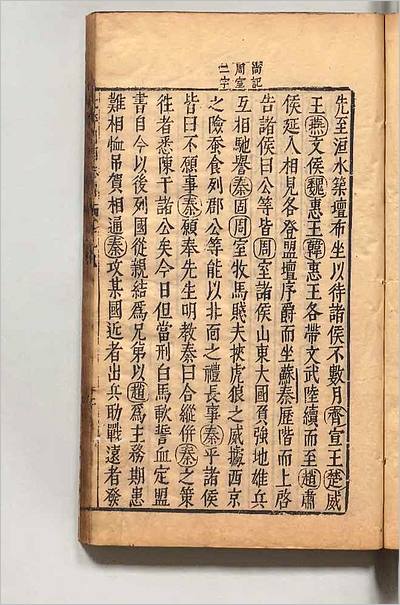 尚記
周室
二字
先至洹水築壇布坐以待諸侯不數月齊宣王楚威
王燕文侯魏惠王韓惠王各帶文武陸續而至趙肅
侯延入相見各登盟壇序爵而坐蘇秦歷階而上啓
告諸侯曰公等皆周室諸侯山東大國頁強地雄兵
互相馳譽秦固周室牧馬賤夫挾虎狼之威據西京
之險蚕食列郡公等能以北面之禮長事秦乎諸侯
皆曰不願事秦願奉先生明教秦曰合縱併秦之策
徃者悉陳干諸公矣今日但當刑白馬歃誓血定盟
書自今以後列國從親結爲兄弟以趙爲主務期患
難相恤吊賀相通秦攻某國近者出兵助戰遠者發